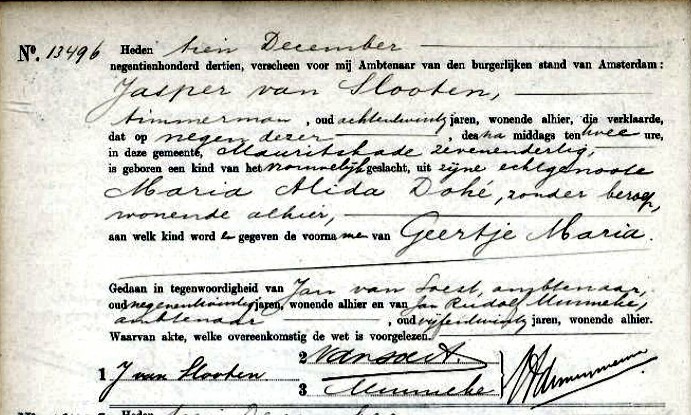 Nº. 13496 Heden tien December
negentienhonderd dertien, verscheen voor mij Ambtenaar van den burgerlijken stand van Amsterdam:
Jasper van Slooten,
timmerman, oud achtentwintig jaren, wonende alhier, die verklaarde,
dat op negen dezer, des na middags ten twee ure,
in deze gemeente, Mauritskade zevenendertig,
is geboren een kind van het vrouwelijk geslacht, uit zijne echtgenoote
Maria Alida Dohé, zonder beroep,
wonende alhier,
aan welk kind word en gegeven de voorna men van Geertje Maria.
Gedaan in tegenwoordigheid van Jan van Soest, ambtenaar,
oud jaren, wonende alhier en van Jan Rudolf Munneke,
ambtenaar, oud vijfentwintig jaren, wonende alhier.
Waarvan akte, welke overeenkomstig de wet is voorgelezen.
1 J van Slooten 2 van Soest
3 Munneke
Heden